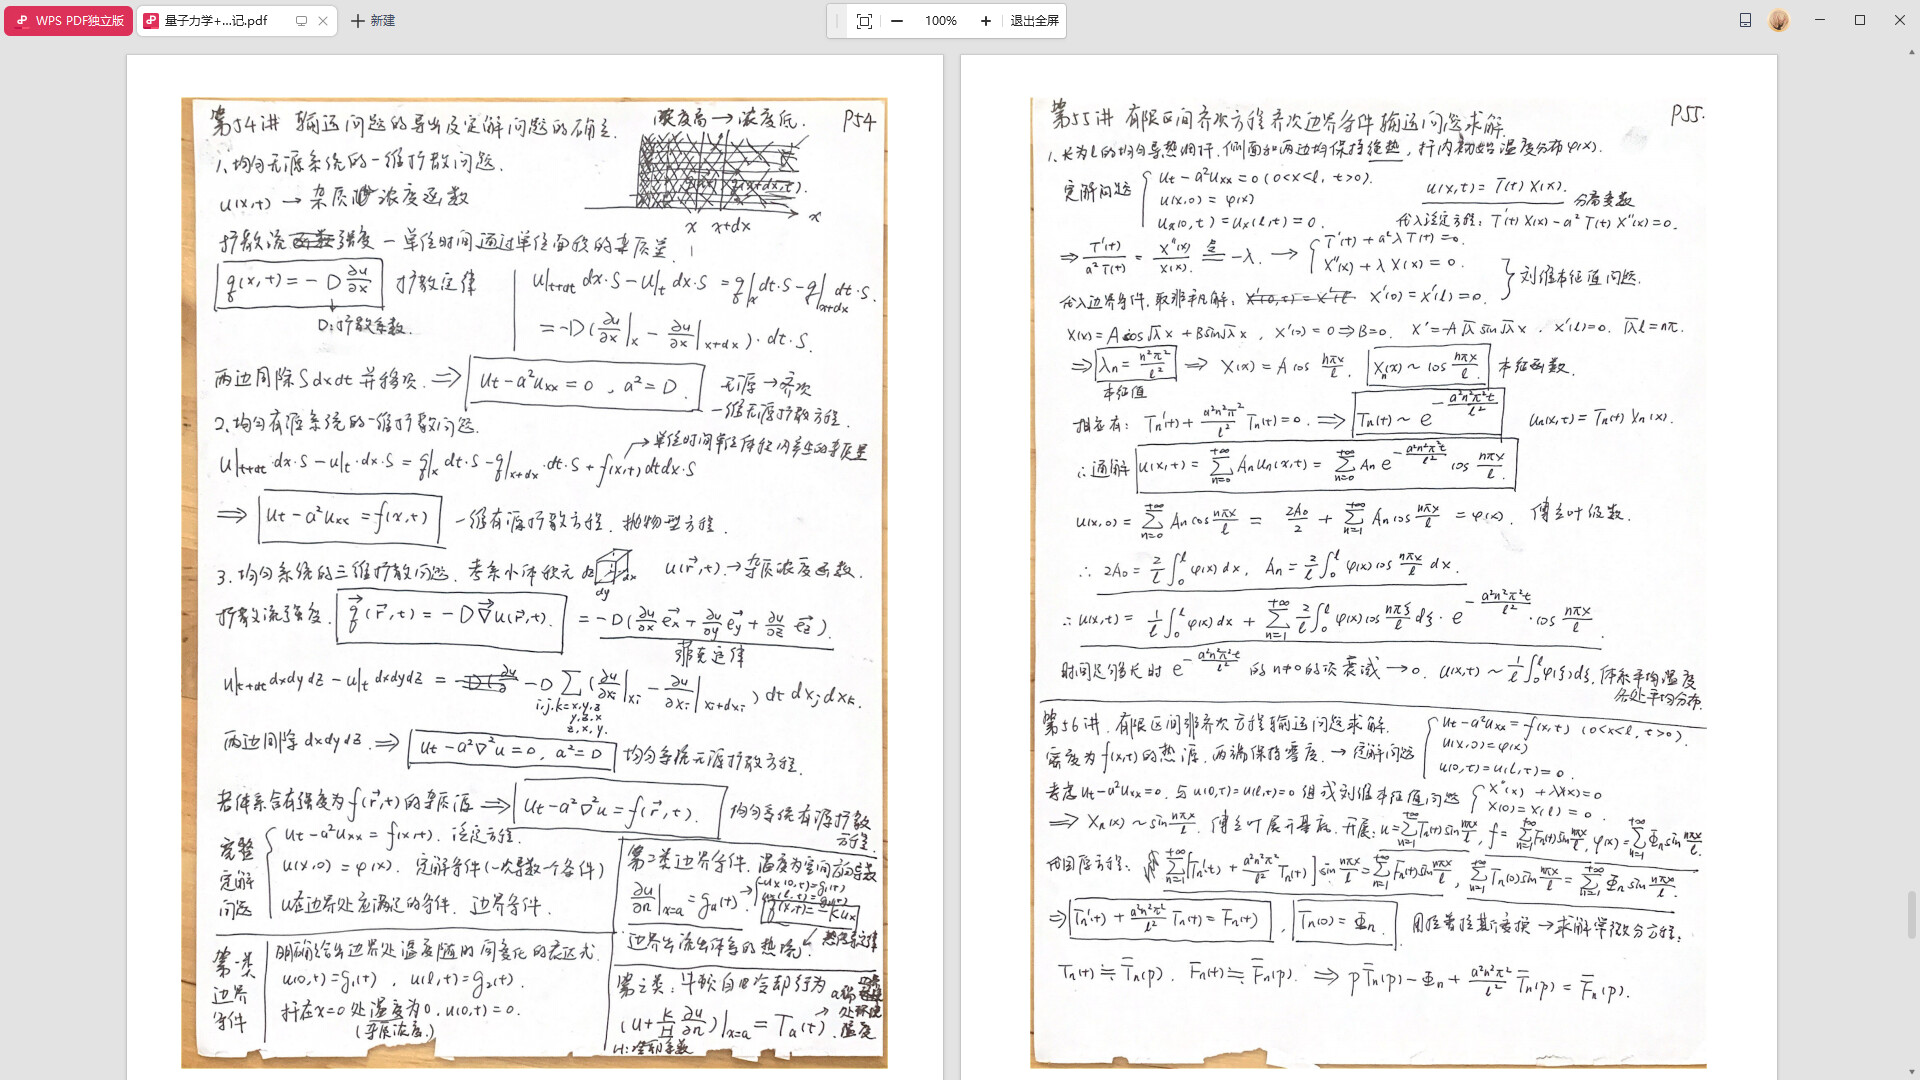 WPS PDF独立版
量子力学+...记.pdf
新建
100%
退出全屏
第54讲 输运问题的导出及定解问题的确定.
P54
浓度高→浓度低.
1.均匀无源系统的一维扩散问题.
u(x,t) → 杂质的浓度函数
x x+dx x
扩散流强度 — 单位时间通过单位面积的杂质量.
q(x,t) = -D ∂u/∂x 扩散定律
D:扩散系数.
u|t+dt dx·S - u|t dx·S = q|x dt·S - q|x+dx dt·S.
= -D(∂u/∂x|x - ∂u/∂x|x+dx)·dt·S.
两边同除Sdxdt并移项. ⇒ ut-a²uxx=0, a²=D. 无源→齐次
一维无源扩散方程.
2.均匀有源系统的一维扩散问题.
→单位时间单位体积内产生的杂质量
u|t+dt·dx·S - u|t·dx·S = q|x dt·S - q|x+dx·dt·S + f(x,t)dtdx·S
⇒ ut-a²uxx=f(x,t) 一维有源扩散方程. 抛物型方程.
3.均匀系统的三维扩散问题. 考虑小体积元 dz dx dy u(r⃗,t).→杂质浓度函数.
扩散流强度. q⃗(r⃗,t) = -D∇⃗u(r⃗,t). = -D(∂u/∂x e⃗x + ∂u/∂y e⃗y + ∂u/∂z e⃗z).
菲克定律
u|t+dt dxdydz - u|t dxdydz = -D Σ (∂u/∂xi|xi - ∂u/∂xi|xi+dxi) dt dxj dxk.
i,j,k=x,y,z
y,z,x
z,x,y.
两边同除dxdydz. ⇒ ut-a²∇²u=0, a²=D 均匀系统无源扩散方程.
若体系含有强度为f(r⃗,t)的杂质源 ⇒ ut-a²∇²u=f(r⃗,t). 均匀系统有源扩散方程.
完整定解问题
ut-a²uxx=f(x,t). 泛定方程.
u(x,0)=φ(x). 定解条件(一次导数一个条件)
u在边界处应满足的条件. 边界条件.
第一类边界条件
明确给出边界处温度随时间变化的表达式.
u(0,t)=g1(t), u(l,t)=g2(t).
杆在x=0处温度为0. u(0,t)=0.
(杂质浓度.)
第二类边界条件. 温度为空间方向导数
∂u/∂n|x=a = ga(t). → ux(0,t)=g1(t) ux(l,t)=g2(t)
q(x,t)=-kux
边界出流出体系的热流. 热传导定律
第三类: 牛顿自由冷却行为
(u+k/H ∂u/∂n)|x=a = Ta(t). → a端处环境温度
H:冷却系数
第55讲 有限区间齐次方程齐次边界条件输运问题求解.
P55.
1.长为l的均匀导热细杆. 侧面和两边均保持绝热, 杆内初始温度分布φ(x).
定解问题
ut-a²uxx=0 (0<x<l, t>0).
u(x,0)=φ(x)
ux(0,t)=ux(l,t)=0.
u(x,t)=T(t)X(x). 分离变数
代入泛定方程: T'(t)X(x)-a²T(t)X''(x)=0.
⇒ T'(t)/a²T(t) = X''(x)/X(x) 令= -λ. → T'(t)+a²λT(t)=0. X''(x)+λX(x)=0. 刘维本征值问题.
代入边界条件, 取非平凡解: X'(0)=X'(l)=0.
X(x)=A cos√λx+B sin√λx, X'(0)=0⇒B=0. X'=-A√λ sin√λx. X'(l)=0. √λl=nπ.
⇒ λn=n²π²/l² ⇒ X(x)=A cos nπx/l. Xn(x)~cos nπx/l 本征函数.
本征值
相应有: Tn'(t)+a²n²π²/l² Tn(t)=0. ⇒ Tn(t)~e^(-a²n²π²t/l²) un(x,t)=Tn(t)Xn(x).
∴通解 u(x,t)=Σ(n=0,+∞) Anun(x,t)=Σ(n=0,+∞) An e^(-a²n²π²t/l²) cos nπx/l.
u(x,0)=Σ(n=0,+∞) An cos nπx/l = 2A0/2 + Σ(n=1,+∞) An cos nπx/l = φ(x). 傅立叶级数.
∴ 2A0=2/l ∫0^l φ(x)dx, An=2/l ∫0^l φ(x)cos nπx/l dx.
∴u(x,t)= 1/l ∫0^l φ(x)dx + Σ(n=1,+∞) 2/l ∫0^l φ(x)cos nπξ/l dξ·e^(-a²n²π²t/l²)·cos nπx/l.
时间足够长时 e^(-a²n²π²t/l²) 的n≠0的项衰减→0. u(x,t)~1/l ∫0^l φ(ξ)dξ. 体系平均温度
各处平均分布.
第56讲. 有限区间非齐次方程输运问题求解.
密度为f(x,t)的热源. 两端保持零度. →定解问题
ut-a²uxx=f(x,t) (0<x<l, t>0).
u(x,0)=φ(x)
u(0,t)=u(l,t)=0.
考虑ut-a²uxx=0. 与u(0,t)=u(l,t)=0 组成刘维本征值问题 X''(x)+λX(x)=0 X(0)=X(l)=0.
⇒Xn(x)~sin nπx/l. 傅立叶展开基底. 开展: u=Σ(n=1,+∞) Tn(t)sin nπx/l, f=Σ(n=1,+∞) Fn(t)sin nπx/l, φ(x)=Σ(n=1,+∞) Φn sin nπx/l.
代回原方程: Σ(n=1,+∞)[Tn'(t)+a²n²π²/l² Tn(t)] sin nπx/l=Σ(n=1,+∞) Fn(t)sin nπx/l, Σ(n=1,+∞) Tn(0)sin nπx/l=Σ(n=1,+∞) Φn sin nπx/l.
⇒ Tn'(t)+a²n²π²/l² Tn(t)=Fn(t), Tn(0)=Φn. 用拉普拉斯变换→求解常微分方程:
Tn(t)≒T̄n(p). Fn(t)≒F̄n(p). ⇒ pT̄n(p)-Φn+a²n²π²/l² T̄n(p)=F̄n(p).